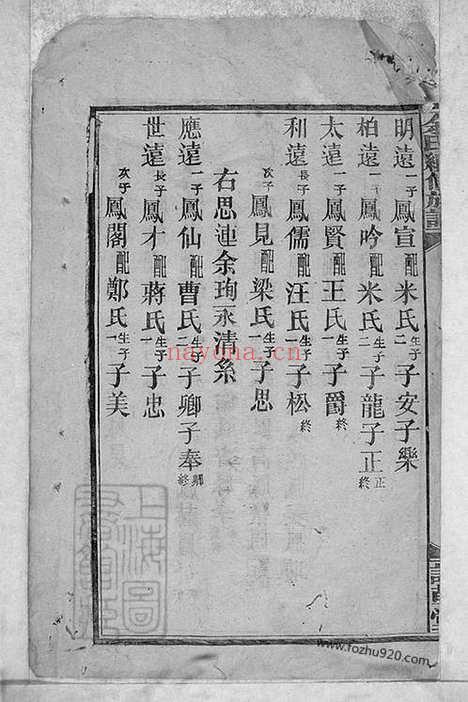 明遠一子鳳宣配米氏生子二子安子樂
柏遠一子鳳吟配米氏生子二子龍子正正終
太遠一子鳳賢配王氏生子一子爵終
利遠長子鳳儒配汪氏生子一子松終
次子鳳見配梁氏生子一子思
右思連余珣永清系
應遠一子鳳仙配曹氏生子二子卿子奉卿終
世遠長子鳳才配蔣氏生子一子忠
次子鳳閣配鄭氏生子一子美
nayona.cn
www.fozhu920.com